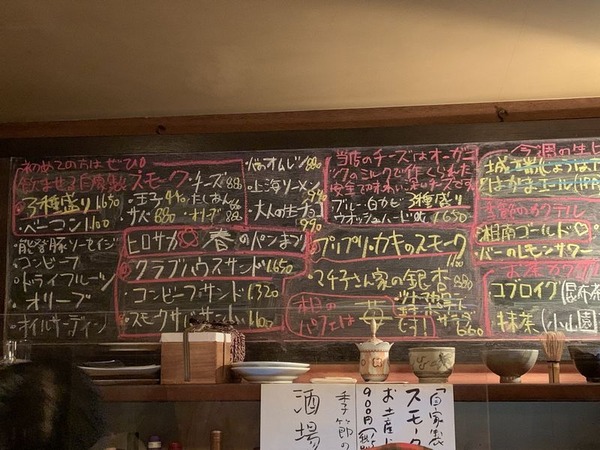 初めての方はぜひ
飲ませる自家製スモーク
3種盛り1,650
・ベーコン1,100
・チーズ880
・玉子
・たくあん
・サバ880
・オリーブ
・能登豚ソーセージ
・コンビーフ
・ドライフルーツ
・オリーブ
・オイルサーディン
ヒロサカ春のパンまつり
クラブハウスサンド1,650
・コンビーフサンド1,320
・スモークサバサンド1,100
オムレツ880
・上海ソーメン
・大人の生チョコ
当店のチーズはオーガニ
ックのミルクで作られた
安全で味わい深いチーズです
・ブルー・白カビ
・ウオッシュ・ハード
3種盛り
1,650
プリップリカキのスモーク
1,100
・マチ子さん家の銀杏
本日の
パフェは
苺
です!
サラダ
660
今週の生ビ
はかまエール
季節のカクテル
湘南ゴールド
バーのレモンサワー
お茶カクテル
コブロイグ(昆布
抹茶(小山園
季節の
酒場
「自家製
スモー
お土産
900円